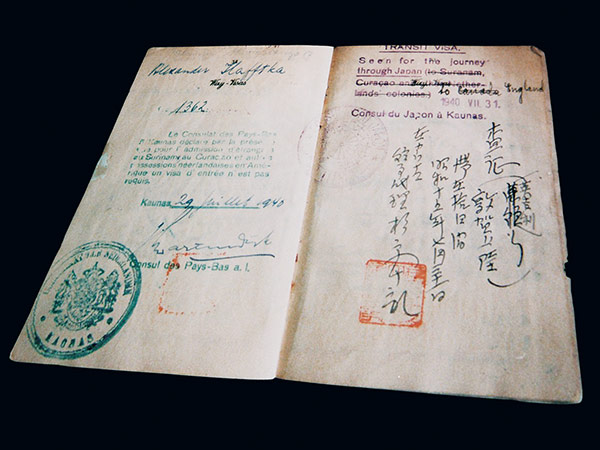 Alexander Hafftka
1362
Le Consulat des Pays-Bas
Kaunas déclare par la présente
pour l'admission d'étrangers
au Surinam, au Curaçao et autres
possessions néerlandaises en Amé-
rique un visa d'entrée n'est pas
requis.
Kaunas, 29 juillet 1940
Consul des Pays-Bas a. i.
KAUNAS
TRANSIT VISA.
Seen for the journey
through Japan (to Suranam,
Curaçao and other Nether-
lands' colonies.) to Canada England
1940 VII. 31.
Consul du Japon à Kaunas.
査証
敦賀上陸
滞在拾日間
昭和十五年七月
在カウナス
領事代理 杉原千畝